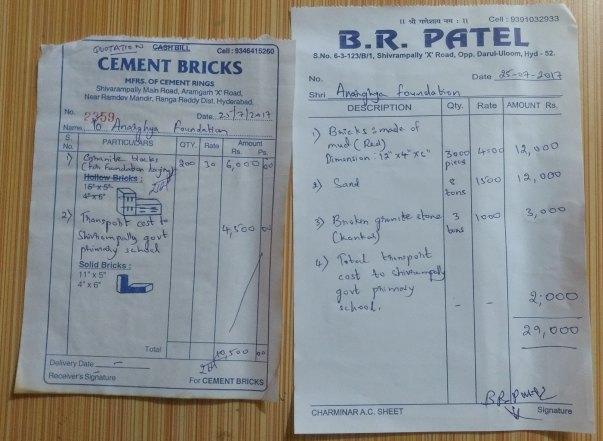 QUOTATION CASH BILL Cell : 9346415260
CEMENT BRICKS
MFRS. OF CEMENT RINGS
Shivarampally Main Road, Aramgarh 'X' Road,
Near Ramdev Mandir, Ranga Reddy Dist. Hyderabad.
No. 2359 Date 25/7/2017
Name To Ananghya Foundation
S. No. PARTICULARS QTY. Rate Amount Rs. Ps.
1) Granite blocks 200 30 6,000 00
(for Foundation laying)
Hollow Bricks :
16" x 5"
4" x 6"
2) Transport cost to 4,500 00
Shivrampally govt
primary school
Solid Bricks :
11" x 5"
4" x 6"
Total 10,500 00
Delivery Date –
Receiver's Signature For CEMENT BRICKS
।। श्री गणेशाय नमः ।। Cell : 9391032933
B.R. PATEL
S.No. 6-3-123/B/1, Shivrampally 'X' Road, Opp. Darul-Uloom, Hyd - 52.
No. Date 25-07-2017
Shri Ananghya Foundation
DESCRIPTION Qty. Rate AMOUNT Rs.
1) Bricks : made of
mud (Red) 3000 4000 12,000
Dimension : 12" x 4" x 6" pieces
2) Sand 8 tons 1500 12,000
3) Broken granite stone 3 tons 1000 3,000
(Kankar)
4) Total transport
cost to shivrampally
govt primary – – 2,000
school.
29,000
B.R. Patel
CHARMINAR A.C. SHEET Signature